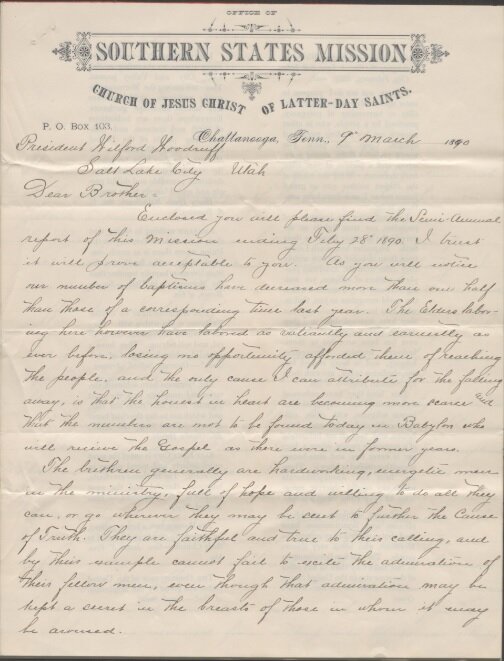 OFFICE OF
SOUTHERN STATES MISSION
CHURCH OF JESUS CHRIST OF LATTER-DAY SAINTS.
P. O. Box 103.
Chattanooga, Tenn., 9th March 1890
President Wilford Woodruff
Salt Lake City Utah
Dear Brother:-
Enclosed you will please find the Semi-Annual
report of this Mission ending Feby 28th 1890. I trust
it will prove acceptable to you. As you will notice
our number of baptisms have decreased more than one half
than those of a corresponding time last year. The Elders labor-
ing here however have labored as valiantly and earnestly as
ever before, losing no opportunity afforded them of reaching
the people, and the only cause I can attribute for the falling
away, is that the honest in heart are becoming more scarce and
that the numbers are not to be found today in Babylon who
will receive the Gospel as there were in former years.
The brethren generally are hardworking, energetic men
in the ministry, full of hope and willing to do all they
can, or go wherever they may be sent to further the Cause
of Truth. They are faithful and true to their calling, and
by their example cannot fail to excite the admiration of
their fellow men, even though that admiration may be
kept a secret in the breasts of those in whom it may
be aroused.